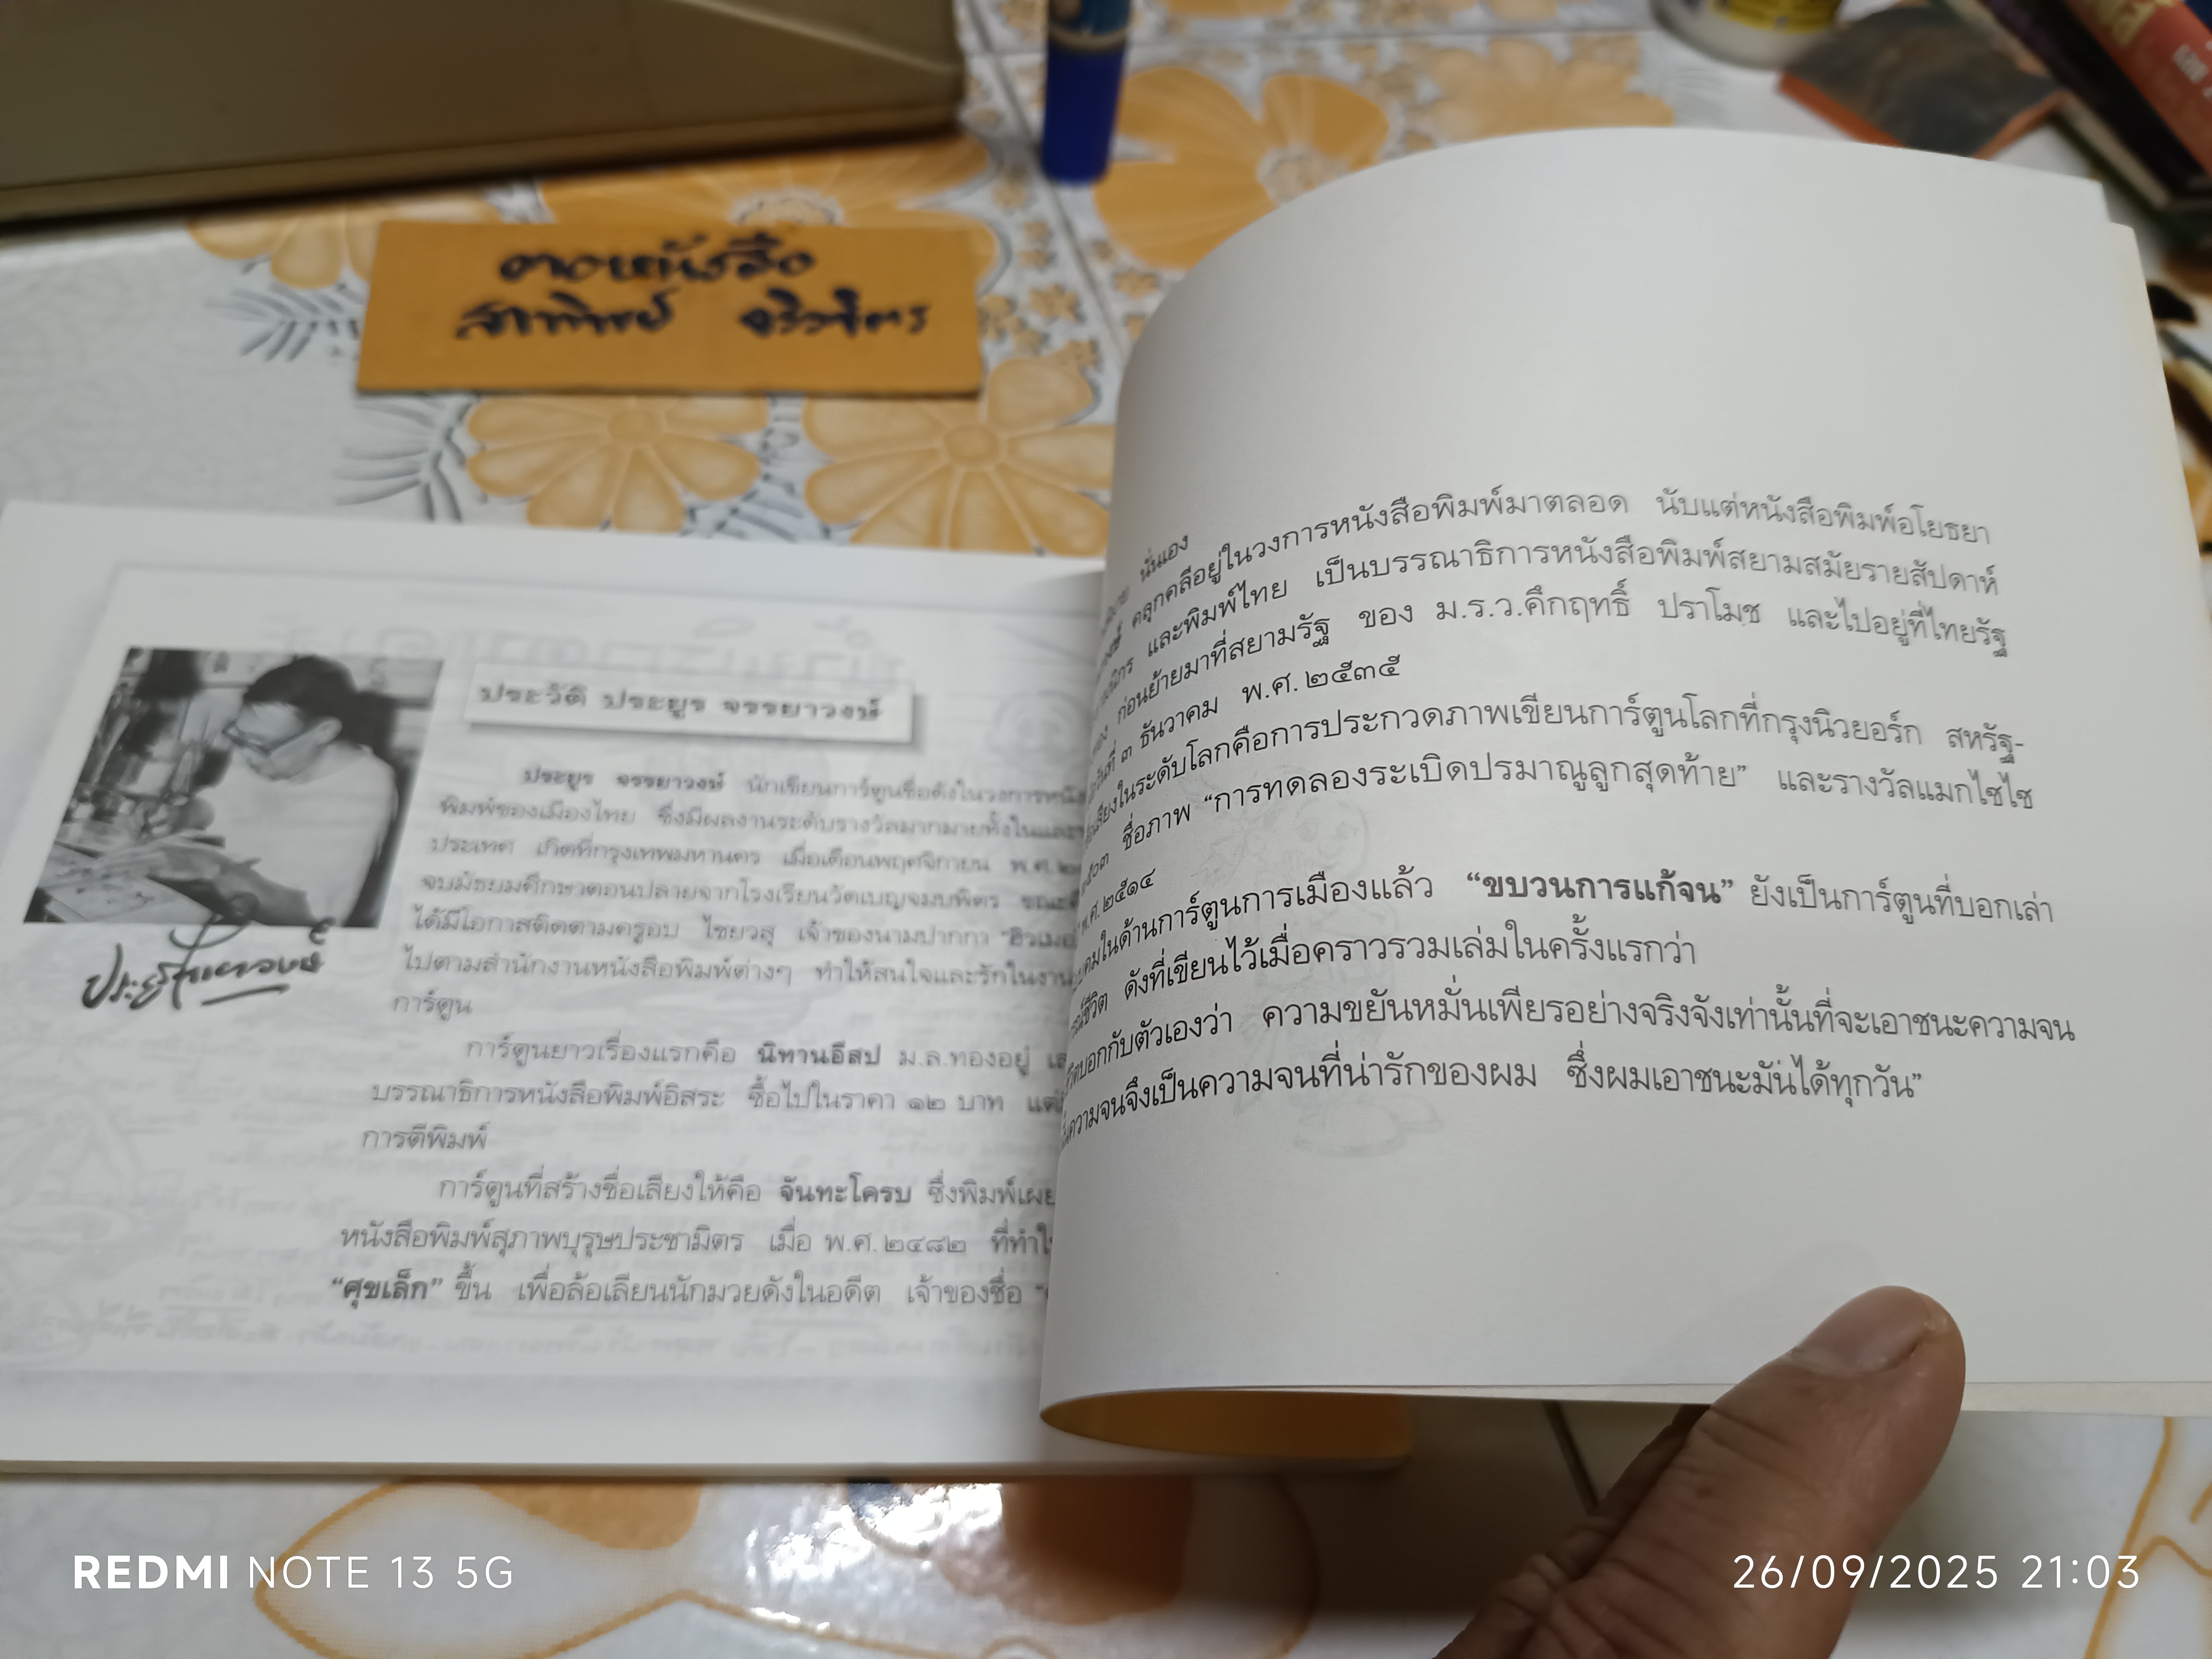 ประวัติ ประยูร จรรยาวงษ์
ประยูร จรรยาวงษ์ นักเขียนการ์ตูนชื่อดังในวงการหนัง
พิมพ์ของเมืองไทย ซึ่งมีผลงานระดับรางวัลมากมายทั้งในและ
ประเทศ เกิดที่กรุงเทพมหานคร เมื่อเดือนพฤศจิกายน พ.ศ.
จบมัธยมศึกษาตอนปลายจากโรงเรียนวัดเบญจมบพิตร ขณะ
ได้มีโอกาสติดตามครูอบ ไชยวสุ เจ้าของนามปากกา "ฮิวเมอ
ไปตามสำนักงานหนังสือพิมพ์ต่างๆ ทำให้สนใจและรักในงาน
การ์ตูน
การ์ตูนยาวเรื่องแรกคือ นิทานอีสป ม.ล.ทองอยู่ เส
บรรณาธิการหนังสือพิมพ์อิสระ ซื้อไปในราคา ๑๒ บาท แต่
การตีพิมพ์
การ์ตูนที่สร้างชื่อเสียงให้คือ จันทะโครบ ซึ่งพิมพ์เผย
หนังสือพิมพ์สุภาพบุรุษประชามิตร เมื่อ พ.ศ.๒๔๘๒ ที่ทำใ
“ศุขเล็ก” ขึ้น เพื่อล้อเลียนนักมวยดังในอดีต เจ้าของชื่อ
ประยูร จรรยาวงษ์
นั่นเอง
คลุกคลีอยู่ในวงการหนังสือพิมพ์มาตลอด นับแต่หนังสือพิมพ์อโยธยา
และพิมพ์ไทย เป็นบรรณาธิการหนังสือพิมพ์สยามสมัยรายสัปดาห์
ก่อนย้ายมาที่สยามรัฐ ของ ม.ร.ว.คึกฤทธิ์ ปราโมช และไปอยู่ที่ไทยรัฐ
วันที่ ๓ ธันวาคม พ.ศ.๒๕๓๕
เสียงในระดับโลกคือการประกวดภาพเขียนการ์ตูนโลกที่กรุงนิวยอร์ก สหรัฐ-
ชื่อภาพ “การทดลองระเบิดปรมาณูลูกสุดท้าย” และรางวัลแมกไซไซ
พ.ศ.๒๕๑๔
คมในด้านการ์ตูนการเมืองแล้ว “ขบวนการแก้จน” ยังเป็นการ์ตูนที่บอกเล่า
ชีวิต ดังที่เขียนไว้เมื่อคราวรวมเล่มในครั้งแรกว่า
บอกกับตัวเองว่า ความขยันหมั่นเพียรอย่างจริงจังเท่านั้นที่จะเอาชนะความจน
ความจนจึงเป็นความจนที่น่ารักของผม ซึ่งผมเอาชนะมันได้ทุกวัน”
REDMI NOTE 13 5G
26/09/2025 21:03